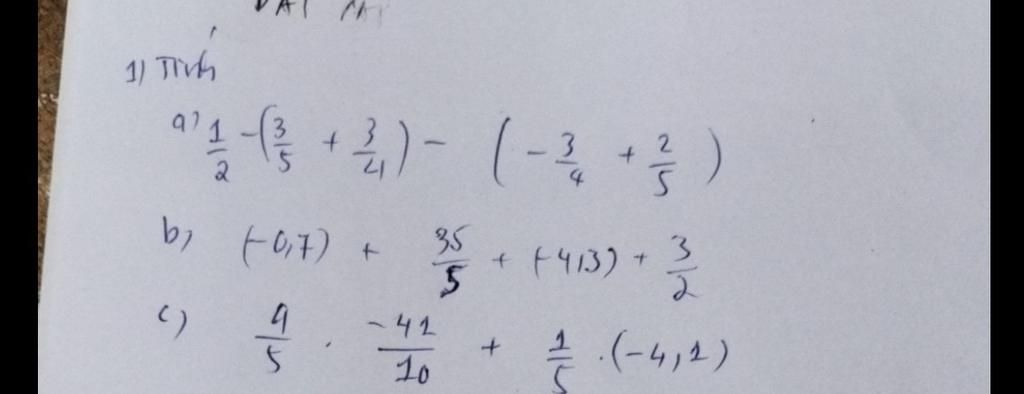 1) Tính
a) 1/2 - (3/5 + 3/4) - (-3/4 + 2/5)
b, (-0,7) + 35/5 + (-4,3) + 3/2
c) 4/5 . -41/10 + 1/5 . (-4,1)